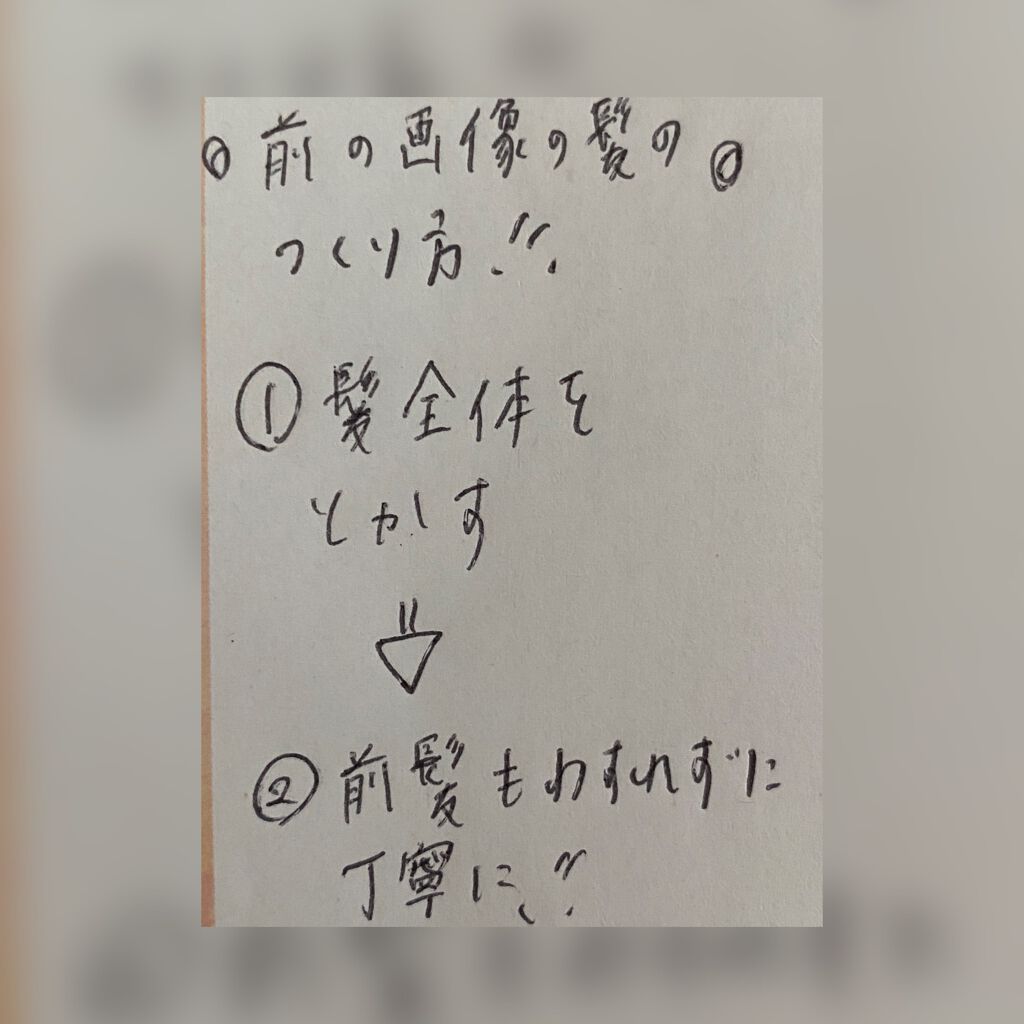 ◎前の画像の髪の◎
つくり方!!
①髪全体を
とかす
②前髪もわすれずに
丁寧に!!